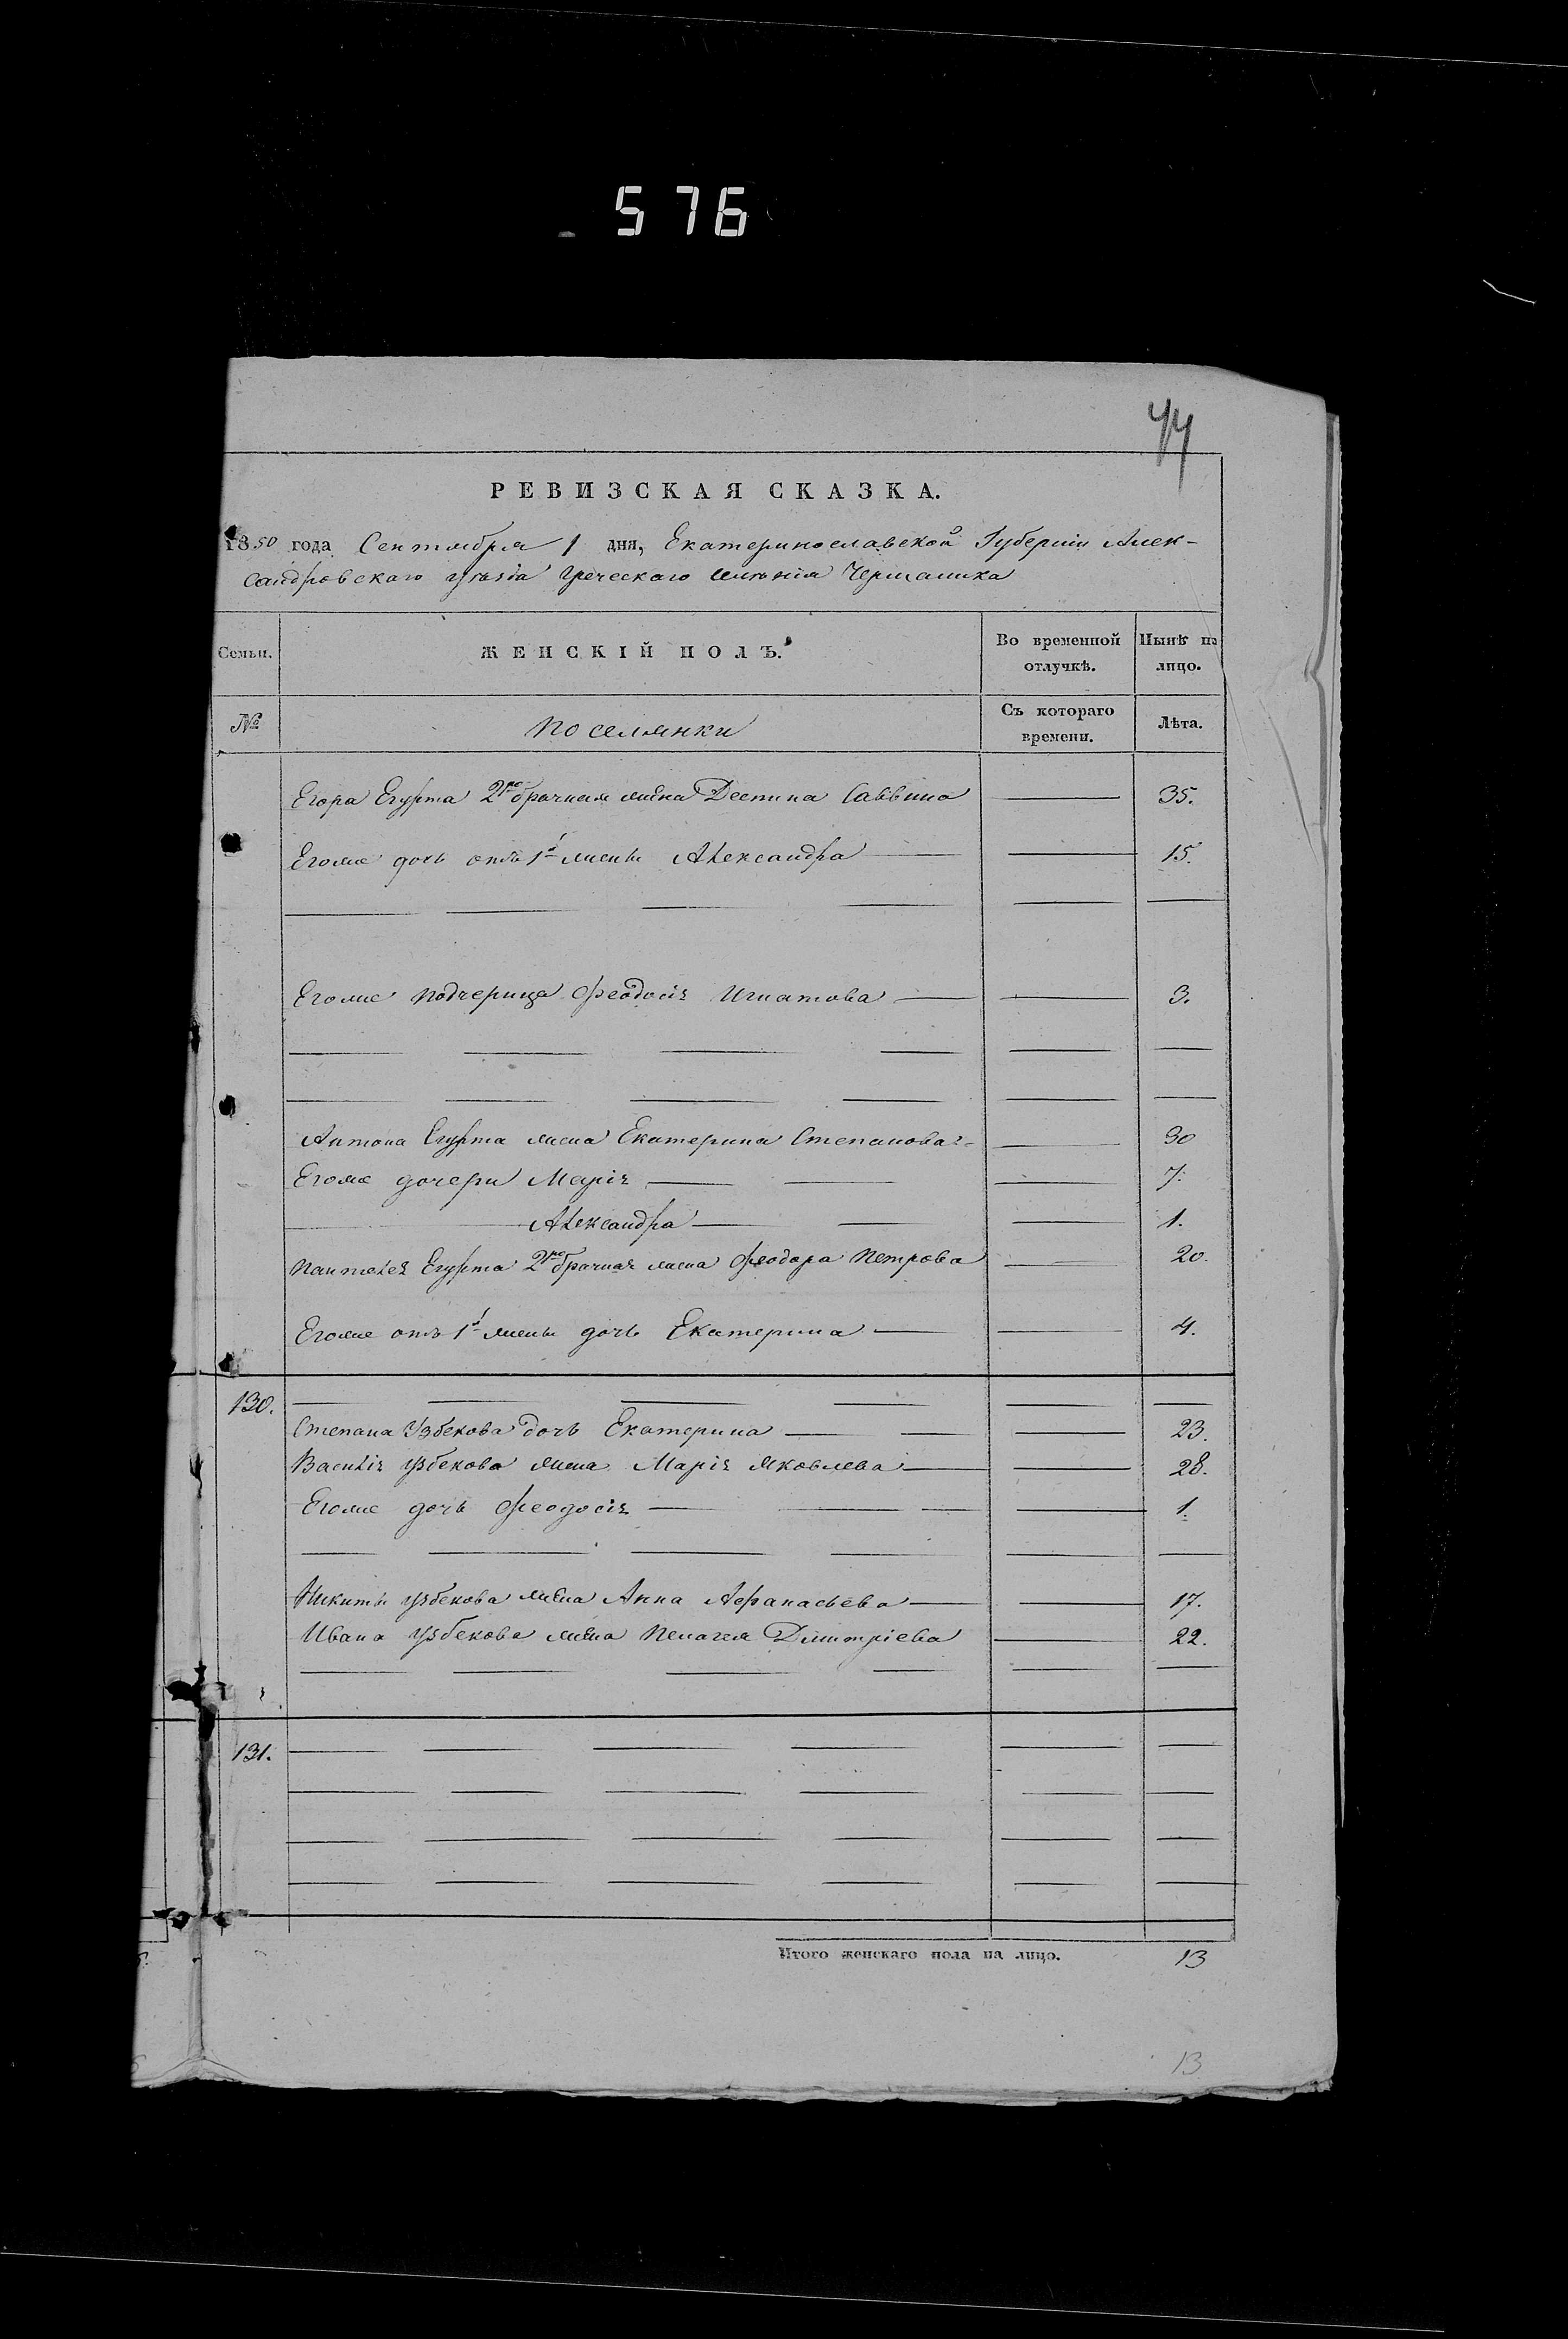 576
44
РЕВИЗСКАЯ СКАЗКА.
1850 года Сентября 1 дня, Екатеринославской Губерніи Алек-
сандровскаго уѣзда Греческаго селенія Чермалика
Семьи. ЖЕНСКІЙ ПОЛЪ. Во временной отлучкѣ. Нынѣ на лицо.
№ Поселянки Съ котораго времени. Лѣта.
Егора Егурта 2робрачная жена Деспина Саввина — 35.
Егоже дочь отъ 1й жены Александра — — 15.
— — — — — —
Егоже подчерица Феодосія Игнатова — — 3.
— — — — — —
— — — — — —
Антона Егурта жена Екатерина Степанова — 30
Егоже дочери Марія — — — 7.
— Александра — — — 1.
Пантелея Егурта 2робрачная жена Феодора Петрова — 20.
Егоже отъ 1й жены дочь Екатерина — — 4.
130. — — — — — —
Степана Узбекова дочь Екатерина — — — 23.
Василія Узбекова жена Марія Яковлева — — 28.
Егоже дочь Феодосія — — — — 1.
— — — — — —
Никиты Узбекова жена Анна Афанасьева — — 17.
Ивана Узбекова жена Пелагея Дмитріева — 22.
— — — — — —
131. — — — — — —
— — — — — —
— — — — — —
— — — — — —
Итого женскаго пола на лицо. 13
13